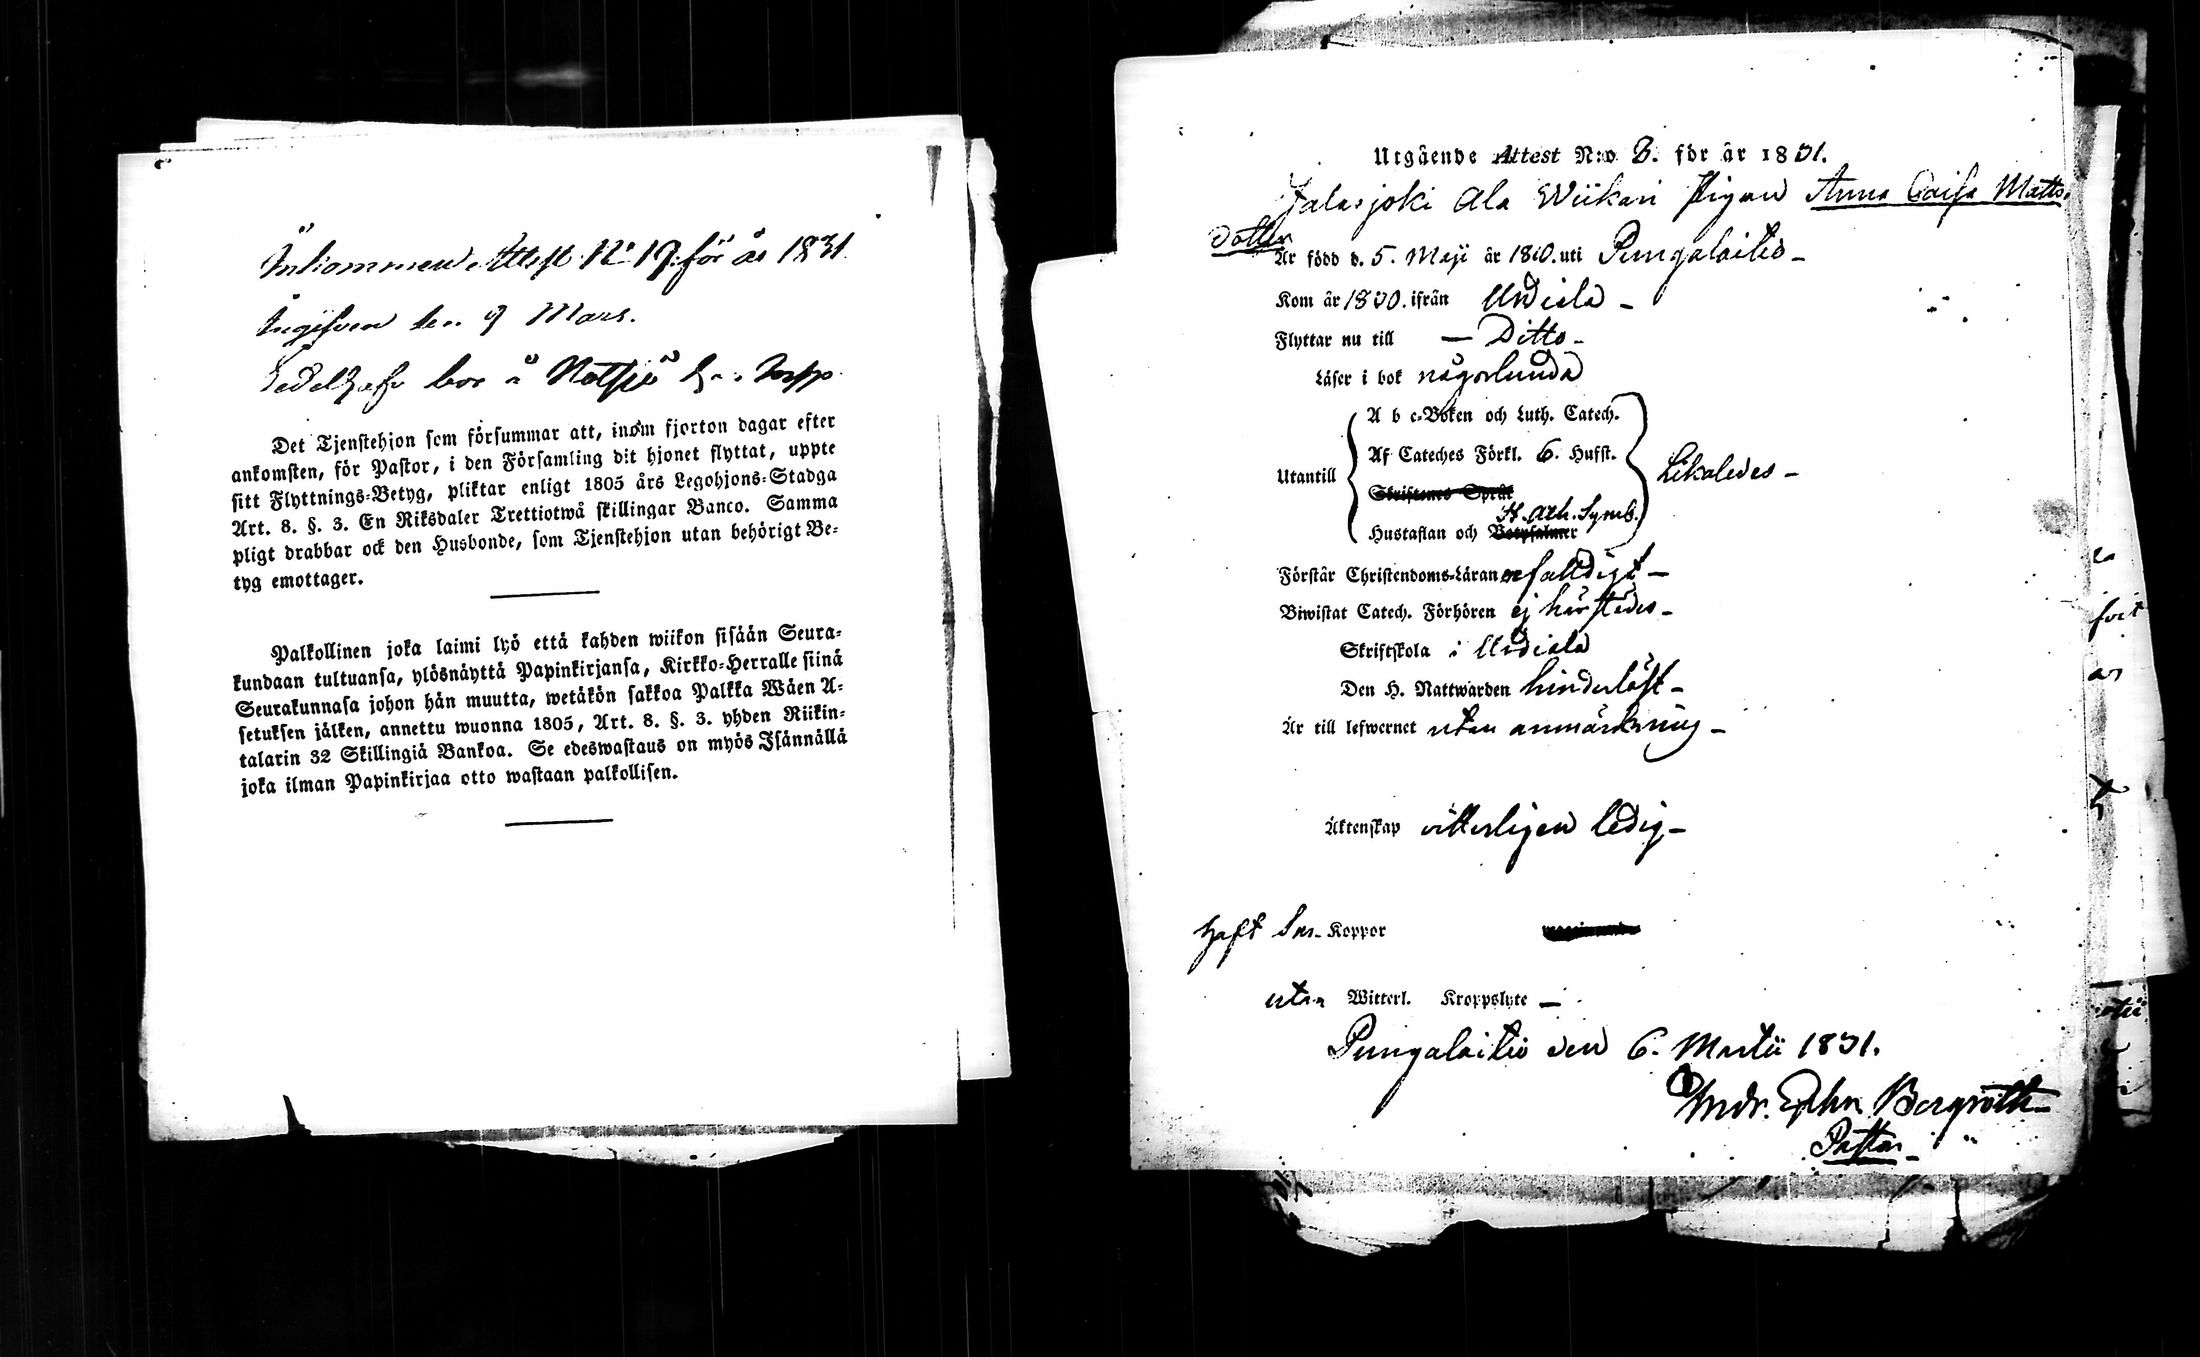 Inkommen Attest No 19 för år 1831
Ingifven den 9 Mars.
Sedelhafv bor å Notsjö torp
Det Tjenstehjon som försummar att, inom fjorton dagar efter
ankomsten, för Pastor, i den Församling dit hjonet flyttat, uppte
sitt Flyttnings-Betyg, pliktar enligt 1805 års Legohjons-Stadga
Art. 8. §. 3. En Riksdaler Trettiotwå skillingar Banco. Samma
pligt drabbar ock den Husbonde, som Tjenstehjon utan behörigt Be-
tyg emottager.
Palkollinen joka laimi lyö että kahden wiikon sisään Seura-
kundaan tultuansa, ylösnäyttä Papinkirjansa, Kirkko-Herralle siinä
Seurakunnasa johon hän muutta, wetäkön sakkoa Palkka Wäen A-
setuksen jälken, annettu wuonna 1805, Art. 8. §. 3. yhden Riikin-
talarin 32 Skillingiä Bankoa. Se edeswastaus on myös Isännällä
joka ilman Papinkirjaa otto wastaan palkollisen.
Utgående Attest N:o 3. för år 1831.
Jalasjoki Ala Wiikari Pigan Anna Caisa Matts
dotter
Är född d. 5. Maji år 1810. uti Pungalaitio
Kom år 1830. ifrån Urdiala
Flyttar nu till Ditto
Läser i bok någorlunda
A b c-Boken och Luth. Catech.
Af Cateches Förkl. 6. Hufst.
Utantill Likaledes
Skriftenes Språk
St. Ath. Symb.
Hustaflan och Botpsalmer
Förstår Christendoms-Läran enfalldigt
Biwistat Catech. Förhören ej härstädes
Skriftskola i Urdiala
Den H. Nattwarden hinderlöst
Är till lefwernet utan anmärkning
Äktenskap vitterligen ledig
Haft Koppor
utan Witterl. Kroppslyte
Pungalaitio den 6. Martii 1831.
Andr. Ephr. Bergroth
Pastor